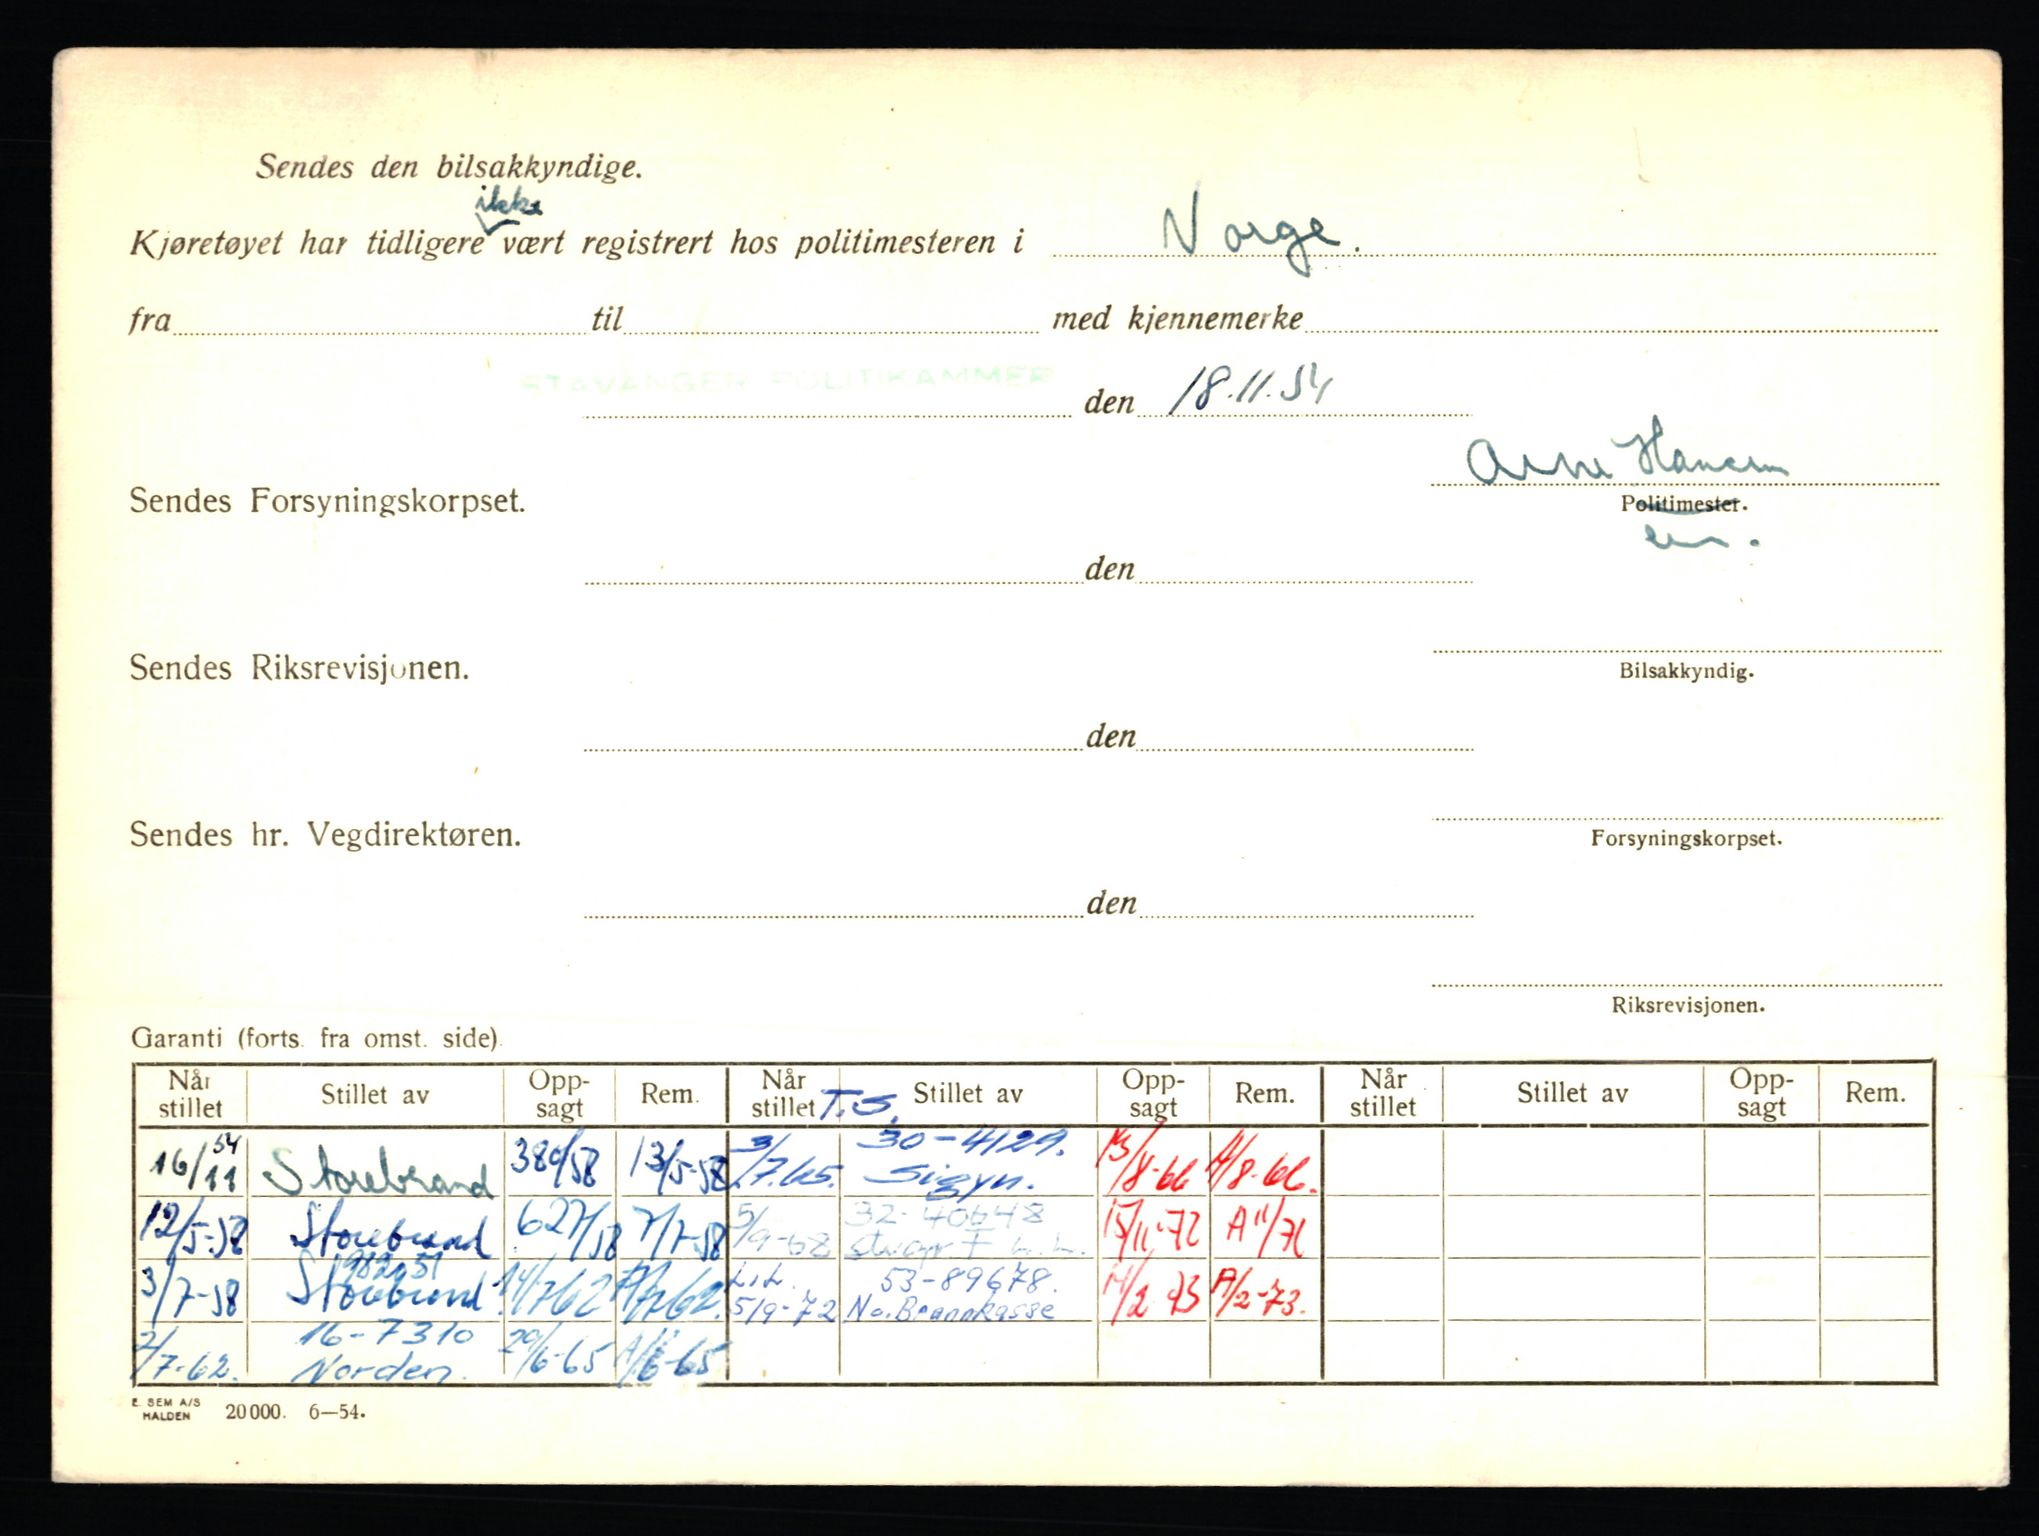 Sendes den bilsakkyndige.
ikke
Kjøretøyet har tidligere vært registrert hos politimesteren i Norge.
fra til med kjennemerke
STAVANGER POLITIKAMMER den 18.11.54
Arne Hansen
Sendes Forsyningskorpset. Politimester.
den
Sendes Riksrevisjonen. Bilsakkyndig.
den
Sendes hr. Vegdirektøren. Forsyningskorpset.
den
Riksrevisjonen.
Garanti (forts. fra omst. side)
Når stillet Stillet av Opp-sagt Rem. Når stillet T.S. Stillet av Opp-sagt Rem. Når stillet Stillet av Opp-sagt Rem.
16/11 54 Storebrand 380/58 13/5-58 3/7.65. 30-4129. Sigyn. /8-66 A/8-66.
12/5-58 Storebrand 627/58 7/7-58 5/9-68 32-40648 15/11-72 A11/71
3/7-58 Storebrand 14/762 A/762. L.L. 5/9-72 53-89678. No. Brannkasse 14/2 73 A/2-73.
2/7-62. 16-7310 Norden. 20/6-65 A/6-65
E. SEM A/S
HALDEN 20000. 6—54.